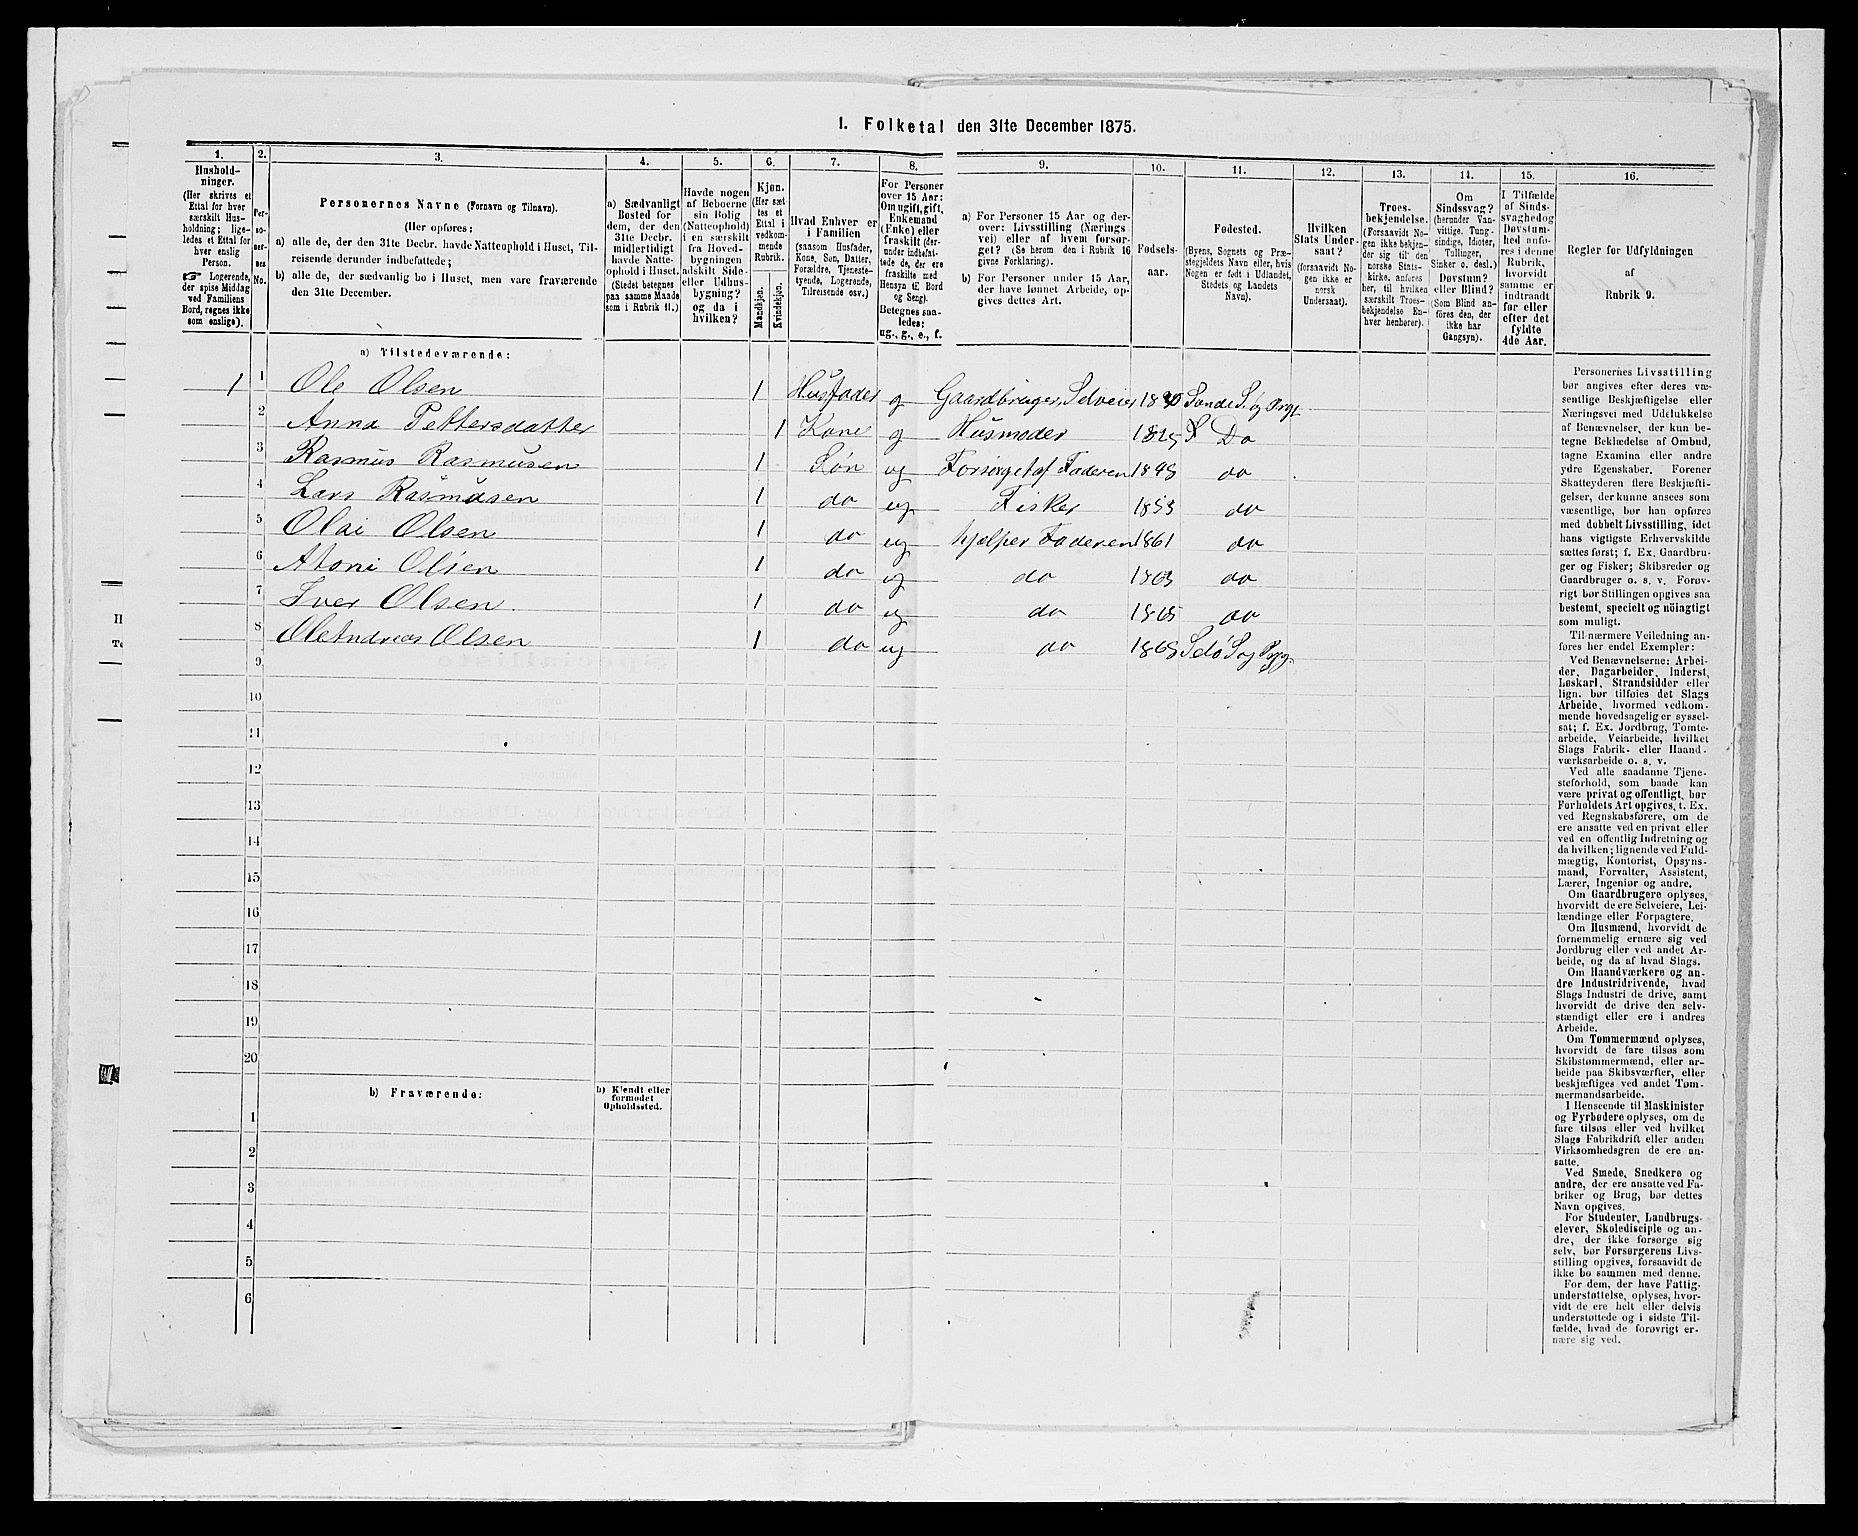 I. Folketal den 31te December 1875.
1. 2. 3. 4. 5. 6. 7. 8. 9. 10. 11. 12. 13. 14. 15. 16.
Hushold-
ninger.
(Her skrives et
Ettal for hver
særskilt Hus-
holdning; lige-
ledes et Ettal for
hver enslig
Person.
☞ Logerende,
der spise Middag
ved Familiens
Bord, regnes ikke
som enslige).
Per-
so-
ner-
nes
No.
Personernes Navne (Fornavn og Tilnavn).
(Her opføres:
a) alle de, der den 31te Decbr. havde Natteophold i Huset, Til-
reisende derunder indbefattede;
b) alle de, der sædvanlig bo i Huset, men vare fraværende
den 31te December.
a) Sædvanligt
Bosted for
dem, der den
31te Decbr.
midlertidigt
havde Natte-
ophold i Huset.
(Stedet betegnes
paa samme Maade
som i Rubrik 11.)
Havde nogen
af Beboerne
sin Bolig
(Natteophold)
i en særskilt
fra Hoved-
bygningen
adskilt Side-
eller Udhus-
bygning?
og da i
hvilken?
Kjøn.
(Her sæt-
tes et
Ettal i
vedkom-
mende
Rubrik.
Mandkjøn.
Kvindekjøn.
Hvad Enhver er
i Familien
(saasom Husfader,
Kone, Søn, Datter,
Forældre, Tjeneste-
tyende, Logerende,
Tilreisende osv.)
For Personer
over 15 Aar:
Om ugift, gift,
Enkemand
(Enke) eller
fraskilt (der-
under indbefat-
tede de, der ere
fraskilte med
Hensyn til Bord
og Seng).
Betegnes saa-
ledes:
ug., g., e., f.
a) For Personer 15 Aar og der-
over: Livsstilling (Nærings-
vei) eller af hvem forsør-
get? (Se herom den i Rubrik 16
givne Forklaring).
b) For Personer under 15 Aar,
der have lønnet Arbeide, op-
gives dettes Art.
Fødsels-
aar.
Fødested.
(Byens, Sognets og Præ-
stegjeldets Navn eller, hvis
Nogen er født i Udlandet,
Stedets og Landets
Navn).
Hvilken
Stats Under-
saat?
(forsaavidt No-
gen ikke er
norsk
Undersaat).
Troes-
bekjendelse.
(Forsaavidt No-
gen ikke bekjen-
der sig til den
norske Stats-
kirke, anføres
her, til hvilken
særskilt Troes-
bekjendelse En-
hver henhører).
Om
Sindssvag?
(herunder Van-
vittige, Tung-
sindige, Idioter,
Tullinger,
Sinker o. desl.)
Døvstum?
eller Blind?
(Som Blind an-
føres den, der
ikke har
Gangsyn).
I Tilfælde
af Sinds-
svaghed og
Døvstum-
hed anfø-
res i denne
Rubrik,
hvorvidt
samme er
indtraadt
før eller
efter det
fyldte
4de Aar.
Regler for Udfyldningen
af
Rubrik 9.
a) Tilstedeværende:
1 1 Ole Olsen 1 Husfader g Gaardbruger, Selveier Sande S. og Prgj.
2 Anna Pettersdatter 1 Kone g Husmoder 1825 Do
3 Rasmus Rasmusen 1 Søn ug Forsørget af Faderen do
4 Lars Rasmusen 1 do ug Fisker 1853 do
5 Olai Olsen 1 do ug hjælper Faderen 1861 do
6 Atoni Olsen 1 do ug do 1863 do
7 Iver Olsen. 1 do ug do 1865 do
8 Ole Andreas Olsen 1 do ug do Selø S og Prgj.
9
10
11
12
13
14
15
16
17
18
19
20
b) Fraværende:
b) Kjendt eller
formodet
Opholdssted.
1
2
3
4
5
6
Personernes Livsstilling
bør angives efter deres væ-
sentlige Beskjæftigelse eller
Næringsvei med Udelukkelse
af Benævnelser, der kun be-
tegne Beklædelse af Ombud,
tagne Examina eller andre
ydre Egenskaber. Forener
Skatteyderen flere Beskjæfti-
gelser, der kunne ansees som
væsentlige, bør han opføres
med dobbelt Livsstilling, idet
hans vigtigste Erhvervskilde
sættes først; f. Ex. Gaardbru-
ger og Fisker; Skibsreder og
Gaardbruger o. s. v. Forøv-
rigt bør Stillingen opgives saa
bestemt, specielt og nöiagtigt
som muligt.
Til nærmere Veiledning an-
føres her endel Exempler:
Ved Benævnelserne: Arbei-
der, Dagarbeider, Inderst,
Løskarl, Strandsidder eller
lign. bør tilføies det Slags
Arbeide, hvormed vedkom-
mende hovedsagelig er syssel-
sat; f. Ex. Jordbrug, Tomte-
arbeide, Veiarbeide, hvilket
Slags Fabrik- eller Haand-
værksarbeide o. s. v.
Ved alle saadanne Tjene-
steforhold, som baade kan
være privat og offentligt, bør
Forholdets Art opgives, t. Ex.
ved Regnskabsførere, om de
ere ansatte ved en privat eller
ved en offentlig Indretning og
da hvilken; lignende ved Fuld-
mægtig, Kontorist, Opsyns-
mand, Forvalter, Assistent,
Lærer, Ingeniør og andre.
Om Gaardbrugere oplyses,
hvorvidt de ere Selveiere, Lei-
lændinge eller Forpagtere.
Om Husmænd, hvorvidt de
fornemmelig ernære sig ved
Jordbrug eller ved andet Ar-
beide, og da af hvad Slags.
Om Haandværkere og an-
dre Industridrivende, hvad
Slags Industri de drive, samt
hvorvidt de drive den selv-
stændigt eller ere i andres
Arbeide.
Om Tømmermænd oplyses,
hvorvidt de fare tilsøs som
Skibstømmermænd, eller ar-
beide paa Skibsværfter, eller
beskjæftiges ved andet Tøm-
mermandsarbeide.
I Henseende til Maskinister
og Fyrbødere oplyses, om de
fare tilsøs eller ved hvilket
Slags Fabrikdrift eller anden
Virksomhedsgren de ere an-
satte.
Ved Smede, Snedkere og
andre, der ere ansatte ved Fa-
briker og Brug, bør dettes
Navn opgives.
For Studenter, Landbrugs-
elever, Skoledisciple og an-
dre, der ikke forsørge sig
selv, bør Forsørgerens Livs-
stilling opgives, forsaavidt de
ikke bo sammen med denne.
For dem, der have Fattig-
understøttelse, oplyses, hvor-
vidt de ere helt eller delvis
understøttede og i sidste Til-
fælde, hvad de forøvrigt er-
nære sig ved.